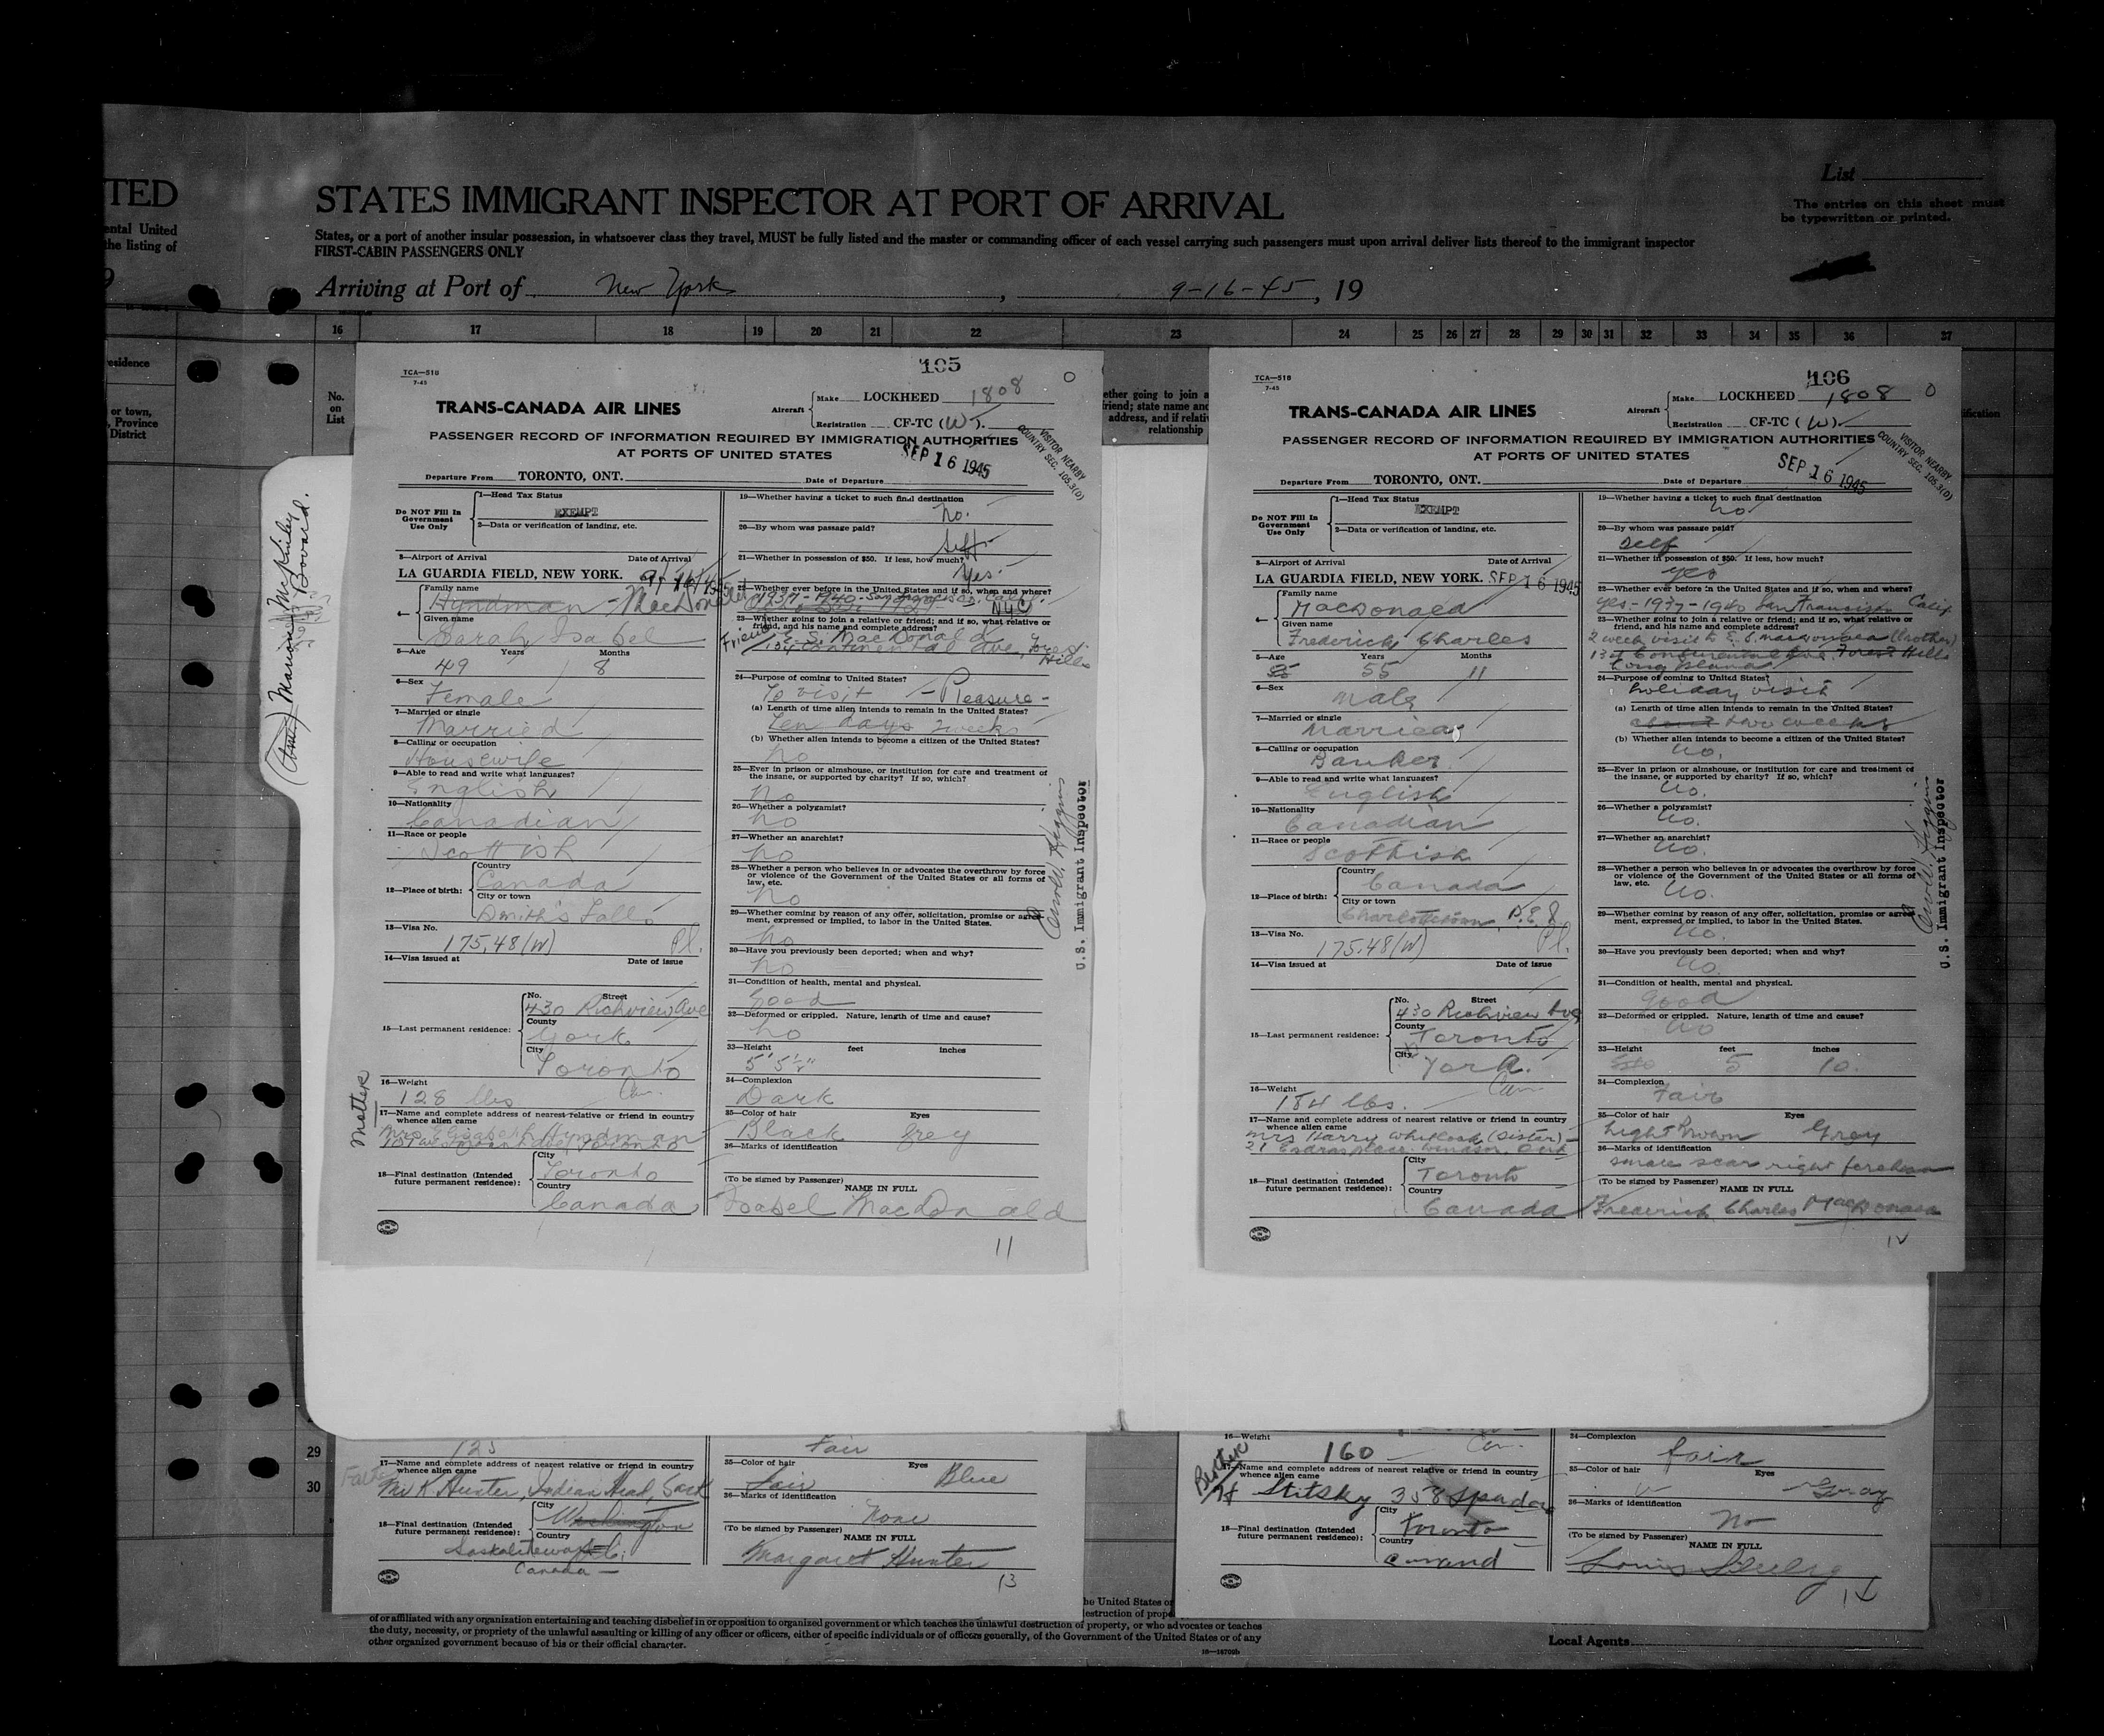 TED
ental United
the listing of
STATES IMMIGRANT INSPECTOR AT PORT OF ARRIVAL
States, or a port of another insular possession, in whatsoever class they travel, MUST be fully listed and the master or commanding officer of each vessel carrying such passengers must upon arrival deliver lists thereof to the immigrant inspector
FIRST-CABIN PASSENGERS ONLY
List
The entries on this sheet must
be typewritten or printed.
Arriving at Port of New York, 9-16-45, 19
16 17 18 19 20 21 22 23 24 25 26 27 28 29 30 31 32 33 34 35 36 37
esidence
or town,
, Province
District
No.
on
List
ether going to join a
friend; state name and
address, and if relati
relationship
ification
(Am) Marion McKinley
Bovaird.
105
TCA—518
7-45
TRANS-CANADA AIR LINES
Aircraft
Make LOCKHEED 1808
Registration CF-TC (W).
PASSENGER RECORD OF INFORMATION REQUIRED BY IMMIGRATION AUTHORITIES
AT PORTS OF UNITED STATES
SEP 16 1945
VISITOR NEARBY
COUNTRY SEC. 105.3(D)
Departure From TORONTO, ONT.
Date of Departure
Do NOT Fill In
Government
Use Only
1—Head Tax Status
EXEMPT
2—Data or verification of landing, etc.
3—Airport of Arrival Date of Arrival
LA GUARDIA FIELD, NEW YORK. 9/16/45
4—
Family name
Hyndman - MacDonald
Given name
Sarah Isabel
5—Age Years Months
49 8
6—Sex
Female
7—Married or single
Married
8—Calling or occupation
Housewife
9—Able to read and write what languages?
English
10—Nationality
Canadian
11—Race or people
Scottish
12—Place of birth:
Country
Canada
City or town
Smith's Falls
13—Visa No.
175.48(W) Pl.
14—Visa issued at Date of issue
15—Last permanent residence:
No. Street
430 Richview Ave
County
York
City
Toronto
16—Weight
128 lbs Can.
Mother
17—Name and complete address of nearest relative or friend in country
whence alien came
Mrs Elisabeth Hyndman
Toronto
18—Final destination (Intended
future permanent residence):
City
Toronto
Country
Canada
19—Whether having a ticket to such final destination
no.
20—By whom was passage paid?
self
21—Whether in possession of $50. If less, how much?
Yes.
22—Whether ever before in the United States and if so, when and where?
1937-1940-San Francisco, Calif.
NYC
23—Whether going to join a relative or friend; and if so, what relative or
friend, and his name and complete address?
Friend E. S. MacDonald
Continental Ave, Forest
Hills
24—Purpose of coming to United States?
To visit - Pleasure -
(a) Length of time alien intends to remain in the United States?
Ten days 2 weeks
(b) Whether alien intends to become a citizen of the United States?
No
25—Ever in prison or almshouse, or institution for care and treatment of
the insane, or supported by charity? If so, which?
No
26—Whether a polygamist?
No
27—Whether an anarchist?
No
28—Whether a person who believes in or advocates the overthrow by force
or violence of the Government of the United States or all forms of
law, etc.
No
29—Whether coming by reason of any offer, solicitation, promise or agree-
ment, expressed or implied, to labor in the United States.
No
30—Have you previously been deported; when and why?
No
31—Condition of health, mental and physical.
Good
32—Deformed or crippled. Nature, length of time and cause?
No
33—Height feet inches
5' 5½"
34—Complexion
Dark
35—Color of hair Eyes
Black Grey
36—Marks of identification
(To be signed by Passenger)
NAME IN FULL
Isabel MacDonald
11
U.S. Immigrant Inspector
106
TCA—518
7-45
TRANS-CANADA AIR LINES
Aircraft
Make LOCKHEED 1808
Registration CF-TC (W).
PASSENGER RECORD OF INFORMATION REQUIRED BY IMMIGRATION AUTHORITIES
AT PORTS OF UNITED STATES
SEP 16 1945
VISITOR NEARBY
COUNTRY SEC. 105.3(D)
Departure From TORONTO, ONT.
Date of Departure
Do NOT Fill In
Government
Use Only
1—Head Tax Status
EXEMPT
2—Data or verification of landing, etc.
3—Airport of Arrival Date of Arrival
LA GUARDIA FIELD, NEW YORK. SEP 16 1945
4—
Family name
MacDonald
Given name
Frederick Charles
5—Age Years Months
55 11
6—Sex
Male
7—Married or single
Married
8—Calling or occupation
Banker
9—Able to read and write what languages?
English
10—Nationality
Canadian
11—Race or people
Scottish
12—Place of birth:
Country
Canada
City or town
Charlottetown, P.E.I.
13—Visa No.
175.48(W) Pl.
14—Visa issued at Date of issue
15—Last permanent residence:
No. Street
430 Richview Ave
County
Toronto
City
York.
16—Weight
184 lbs. Can.
17—Name and complete address of nearest relative or friend in country
whence alien came
Mrs Harry Whitlock (sister) -
21 Esdras place. Windsor, Ont
18—Final destination (Intended
future permanent residence):
City
Toronto
Country
Canada
19—Whether having a ticket to such final destination
no
20—By whom was passage paid?
Self
21—Whether in possession of $50. If less, how much?
yes
22—Whether ever before in the United States and if so, when and where?
yes - 1937-1940 San Francisco Calif
23—Whether going to join a relative or friend; and if so, what relative or
friend, and his name and complete address?
2 week visit to E. S. MacDonald (brother)
Continental Ave. Forest Hills
Long Island.
24—Purpose of coming to United States?
holiday visit
(a) Length of time alien intends to remain in the United States?
about two weeks
(b) Whether alien intends to become a citizen of the United States?
no.
25—Ever in prison or almshouse, or institution for care and treatment of
the insane, or supported by charity? If so, which?
No.
26—Whether a polygamist?
No.
27—Whether an anarchist?
No.
28—Whether a person who believes in or advocates the overthrow by force
or violence of the Government of the United States or all forms of
law, etc.
No.
29—Whether coming by reason of any offer, solicitation, promise or agree-
ment, expressed or implied, to labor in the United States.
No.
30—Have you previously been deported; when and why?
No.
31—Condition of health, mental and physical.
good
32—Deformed or crippled. Nature, length of time and cause?
No
33—Height feet inches
5 10.
34—Complexion
Fair
35—Color of hair Eyes
Light Brown Grey
36—Marks of identification
small scar right forehead
(To be signed by Passenger)
NAME IN FULL
Frederick Charles MacDonald
U.S. Immigrant Inspector
29
30
125
Father
17—Name and complete address of nearest relative or friend in country
whence alien came
Mr K Hunter, Indian Head, Sask
18—Final destination (Intended
future permanent residence):
City
Washington
Country
Canada —
Fair
35—Color of hair Eyes
Fair Blue
36—Marks of identification
None
(To be signed by Passenger)
NAME IN FULL
Margaret Hunter
13
16—Weight
160 Can.
Brother
17—Name and complete address of nearest relative or friend in country
whence alien came
Stitsky 358 Spadina
18—Final destination (Intended
future permanent residence):
City
Toronto
Country
34—Complexion
fair
35—Color of hair Eyes
Gray
36—Marks of identification
No
(To be signed by Passenger)
NAME IN FULL
Louis
he United States or
destruction of prope
of or affiliated with any organization entertaining and teaching disbelief in or opposition to organized government or which teaches the unlawful destruction of property, or who advocates or teaches
the duty, necessity, or propriety of the unlawful assaulting or killing of any officer or officers, either of specific individuals or of officers generally, of the Government of the United States or of any
other organized government because of his or their official character.
Local Agents